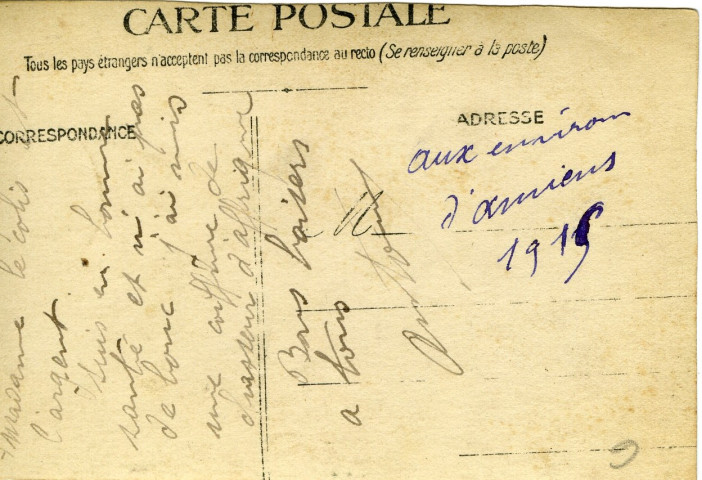 CARTE POSTALE
Tous les pays étrangers n'acceptent pas la correspondance au recto (Se renseigner à la poste)
CORRESPONDANCE
ADRESSE
Madame le colis et
l'argent
suis en bonne
santé et n'ai pas
de bouc j'ai mis
une coiffure de
chasseur d'affrique
Bons baisers
a tous
aux environ
d'amiens
1915